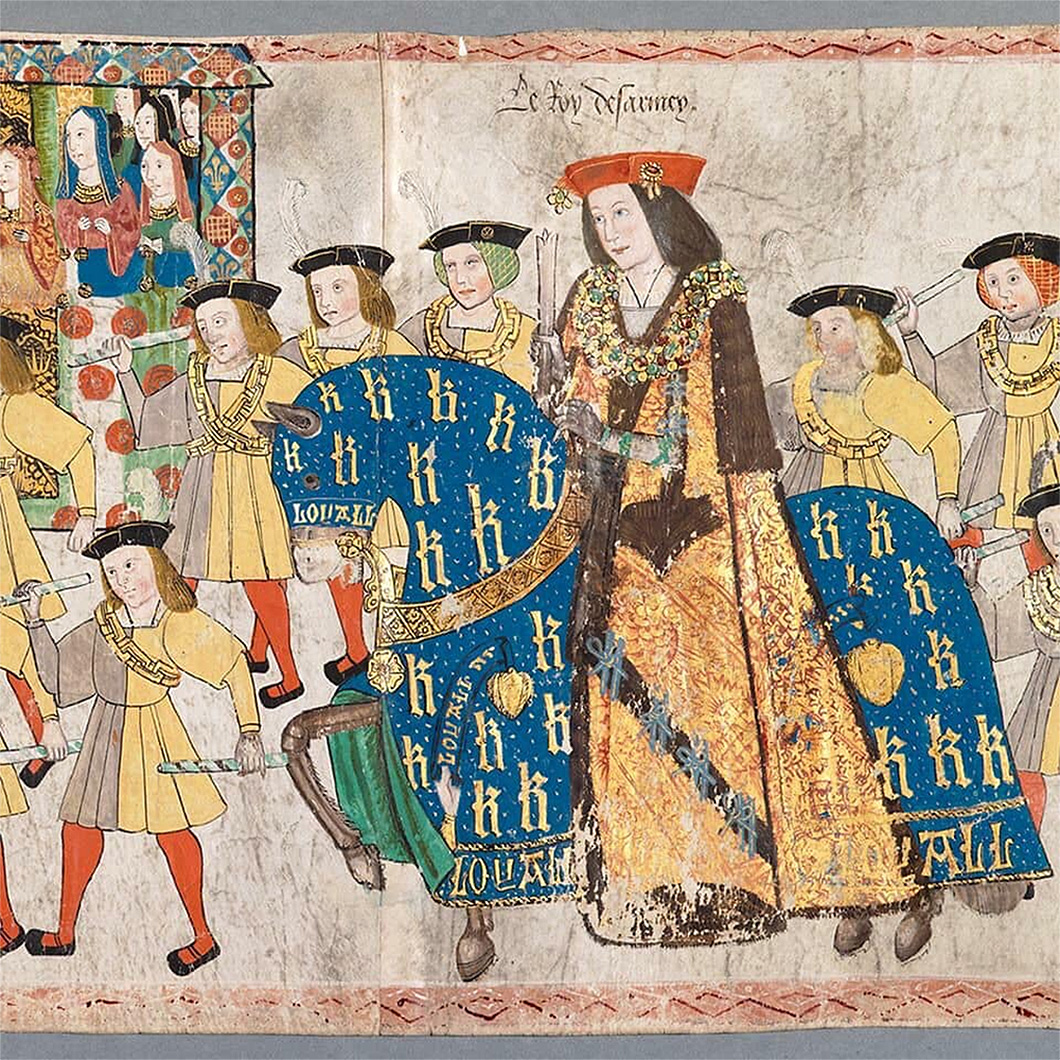 Le Roy desarmey.
k k k k
k k k k
LOUALL
k k
k k
LOUALL
k k
k k k
LOUALL
k k
k k
k
k k k
UALL